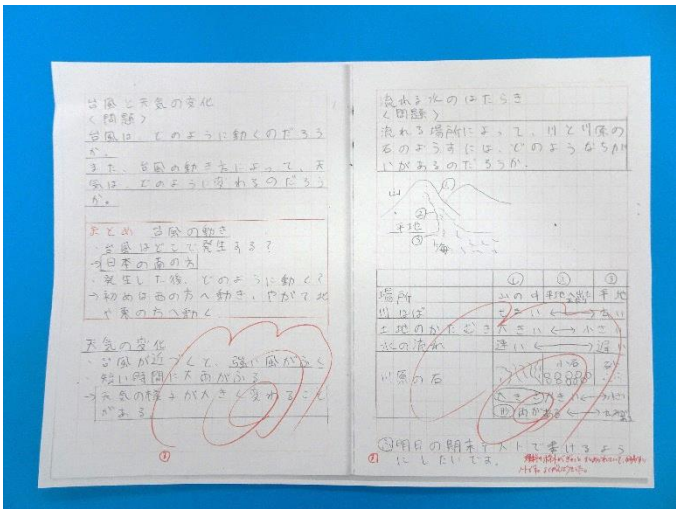 台風と天気の変化
〈問題〉
台風は、どのように動くのだろう
か。
また、台風の動き方によって、天
気は、どのように変わるのだろう
か。
まとめ 台風の動き
・台風はどこで発生する?
→日本の南の方
・発生した後、どのように動く?
→初めは西の方へ動き、やがて北
や東の方へ動く
天気の変化
・台風が近づくと、強い風がふく
・短い時間に大雨がふる
→天気の様子が大きく変わること
がある
①
流れる水のはたらき
〈問題〉
流れる場所によって、川と川原の
石のようすには、どのようなちが
いがあるのだろうか。
山
①
②
平地
③
海
① ② ③
場所 山の中 平地
川はば ←→
土地のかたむき 大きい ←→ 小さ
水の流れ 速い ←→ 遅い
川原の石 小石
大きさ 大きい ←→ 小さい
形 ←→
明日の期末テストで書けるよう
にしたいです。
②